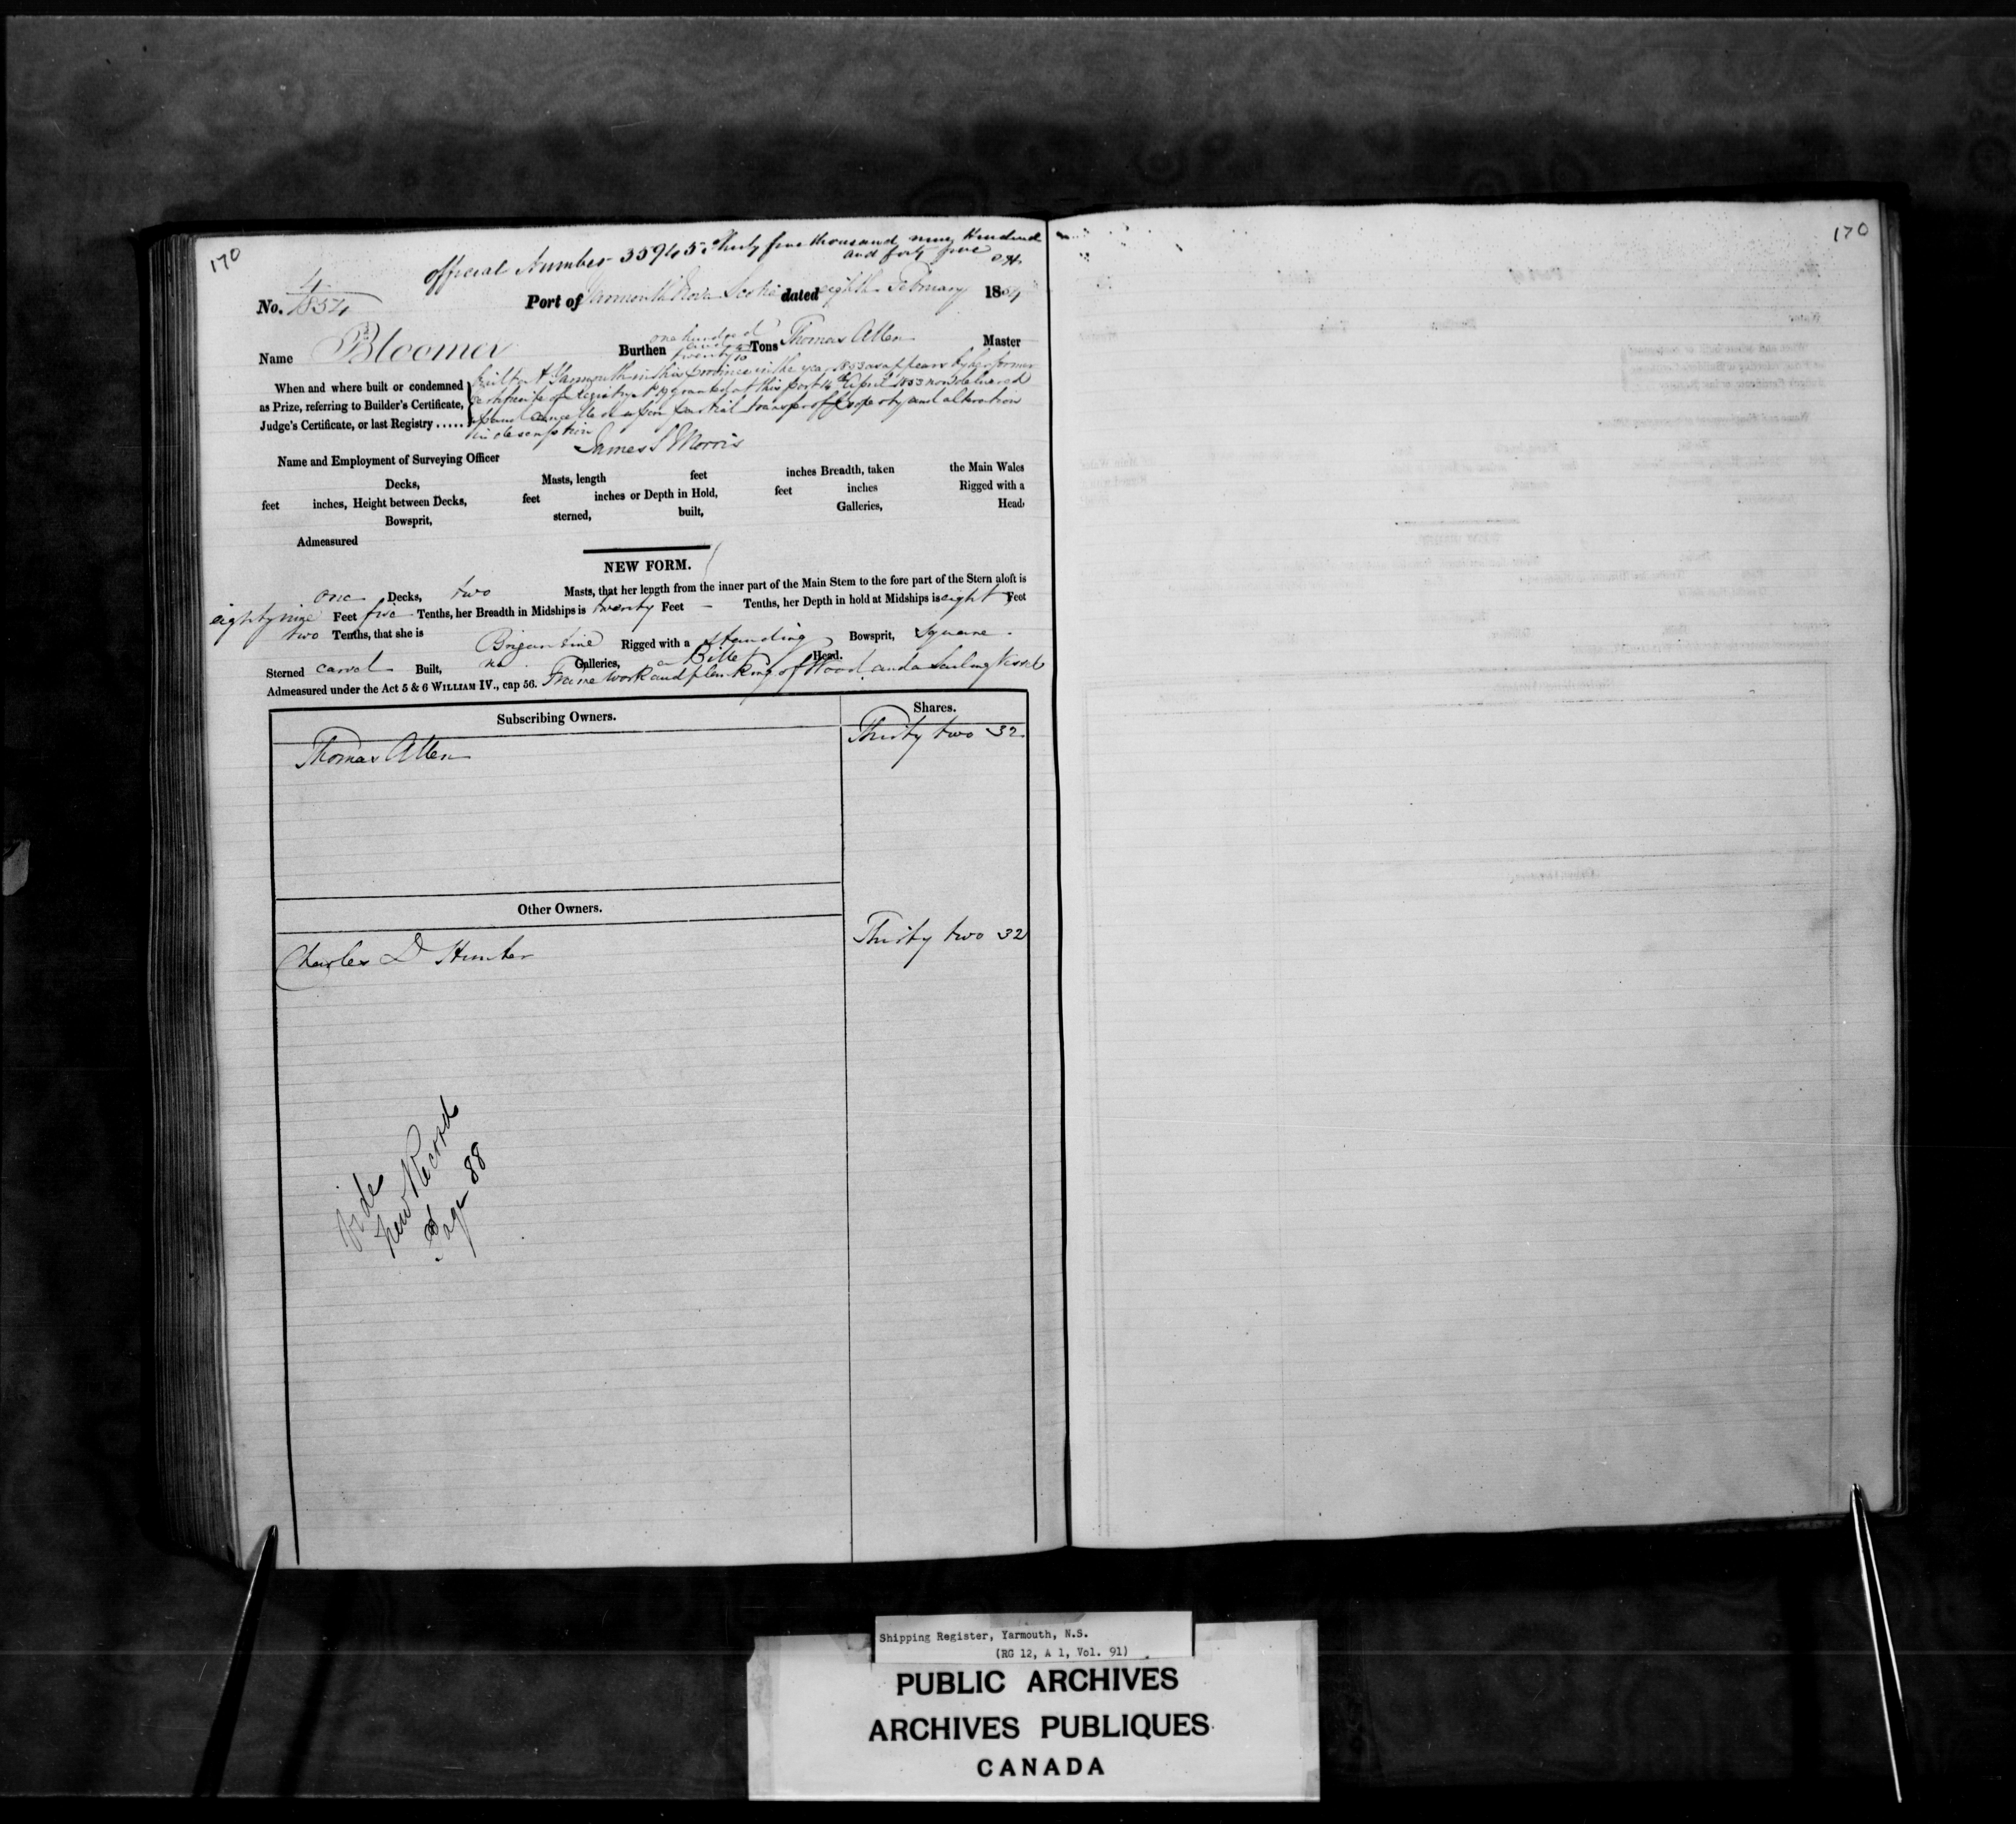 170
official Number 35945 Thirty five thousand nine Hundred
and forty five
No. 4/1854
Port of Yarmouth Nova Scotia dated eighth February 1854
Name Bloomer Burthen one hundred and twenty 4/10 Tons Thomas Allen Master
When and where built or condemned as Prize, referring to Builder's Certificate, Judge's Certificate, or last Registry .....
built at Yarmouth in this province in the year 1853 as appears by her former
certificate of registry granted at this port 16th April 1853 now delivered
up and cancelled upon partial transfer of property and alteration
in description
Name and Employment of Surveying Officer James S Morris
Decks, Masts, length feet inches Breadth, taken the Main Wales
feet inches, Height between Decks, feet inches or Depth in Hold, feet inches Rigged with a
Bowsprit, sterned, built, Galleries, Head,
Admeasured
NEW FORM.
one Decks, two Masts, that her length from the inner part of the Main Stem to the fore part of the Stern aloft is
eighty nine Feet five Tenths, her Breadth in Midships is twenty Feet — Tenths, her Depth in hold at Midships is eight Feet
two Tenths, that she is Brigantine Rigged with a standing Bowsprit, square
Sterned carvel Built, no Galleries, a Billet Head.
Admeasured under the Act 5 & 6 WILLIAM IV., cap 56. Frame work and planking of Wood and a Sailing Vessel
Subscribing Owners. Shares.
Thomas Allen Thirty two 32
Other Owners.
Charles D Hunter Thirty two 32
Vide
New Record
Page 88
170
Shipping Register, Yarmouth, N.S.
(RG 12, A 1, Vol. 91)
PUBLIC ARCHIVES
ARCHIVES PUBLIQUES
CANADA